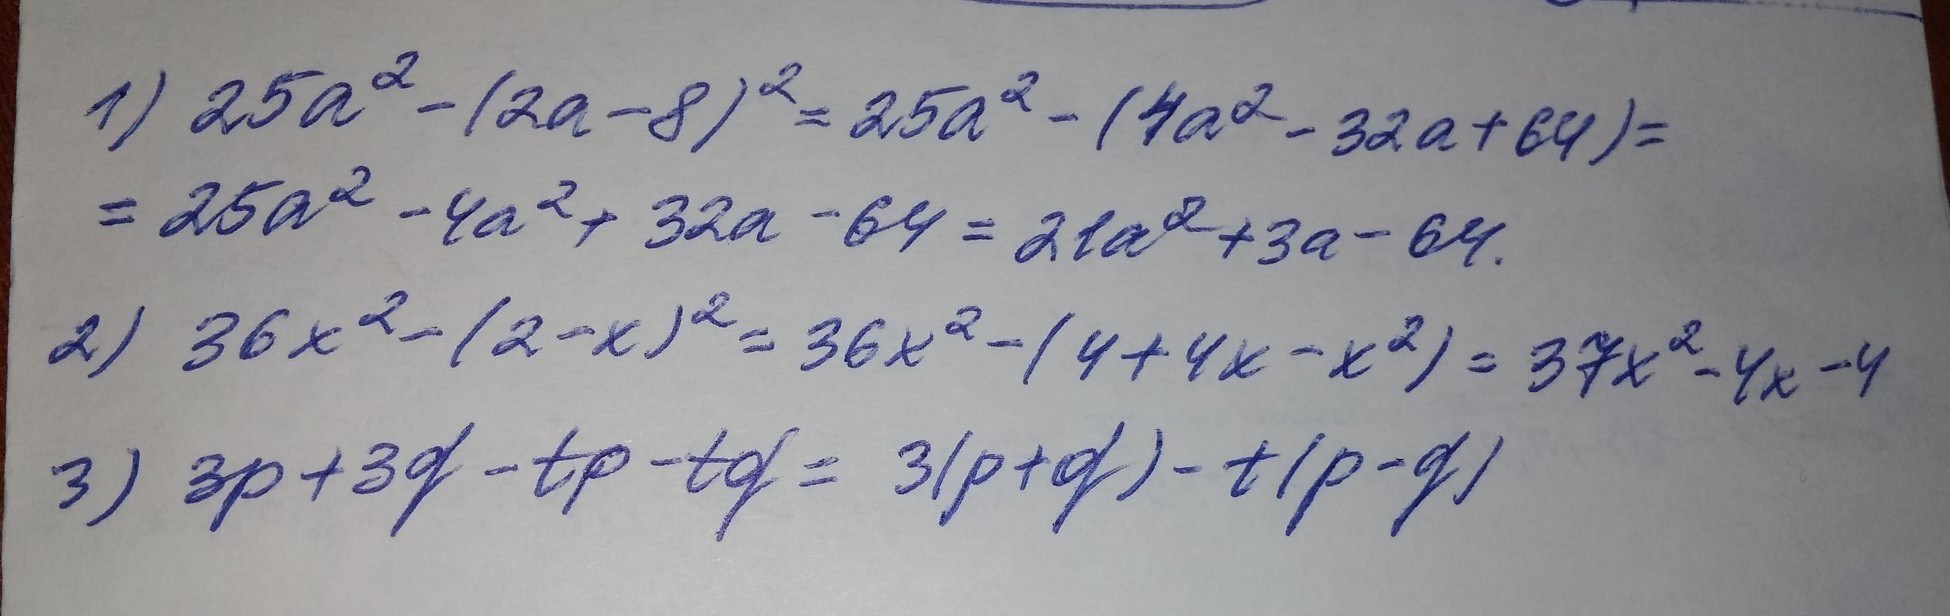 1) 25a² - (2a - 8)² = 25a² - (4a² - 32a + 64) =
= 25a² - 4a² + 32a - 64 = 21a² + 3a - 64.
2) 36x² - (2 - x)² = 36x² - (4 + 4x - x²) = 37x² - 4x - 4
3) 3p + 3q - tp - tq = 3(p + q) - t(p - q)